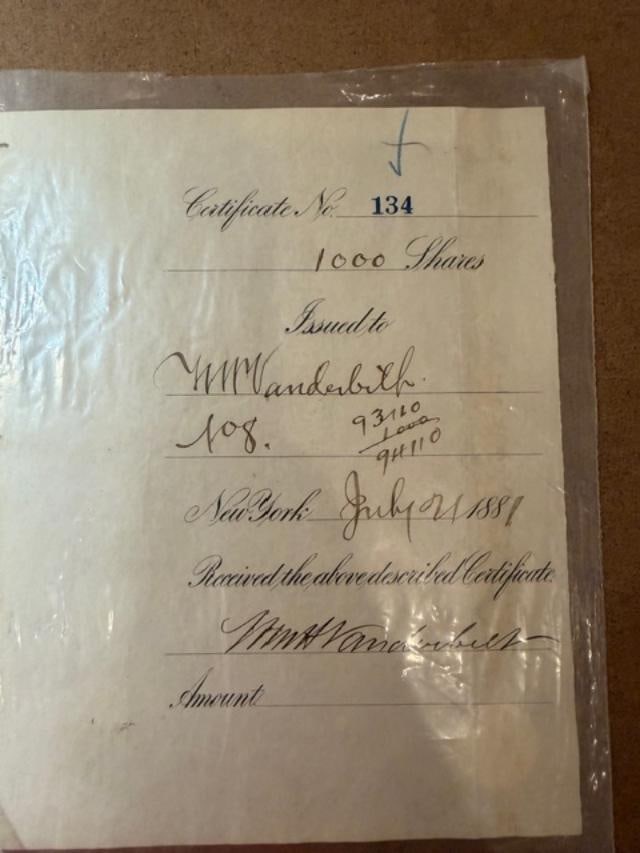 Certificate No. 134
1000 Shares
Issued to
Vanderbilt.
No 8.
93110
1000
94110
New York July 21 1881
Received the above described Certificate
Wm H Vanderbilt
Amount